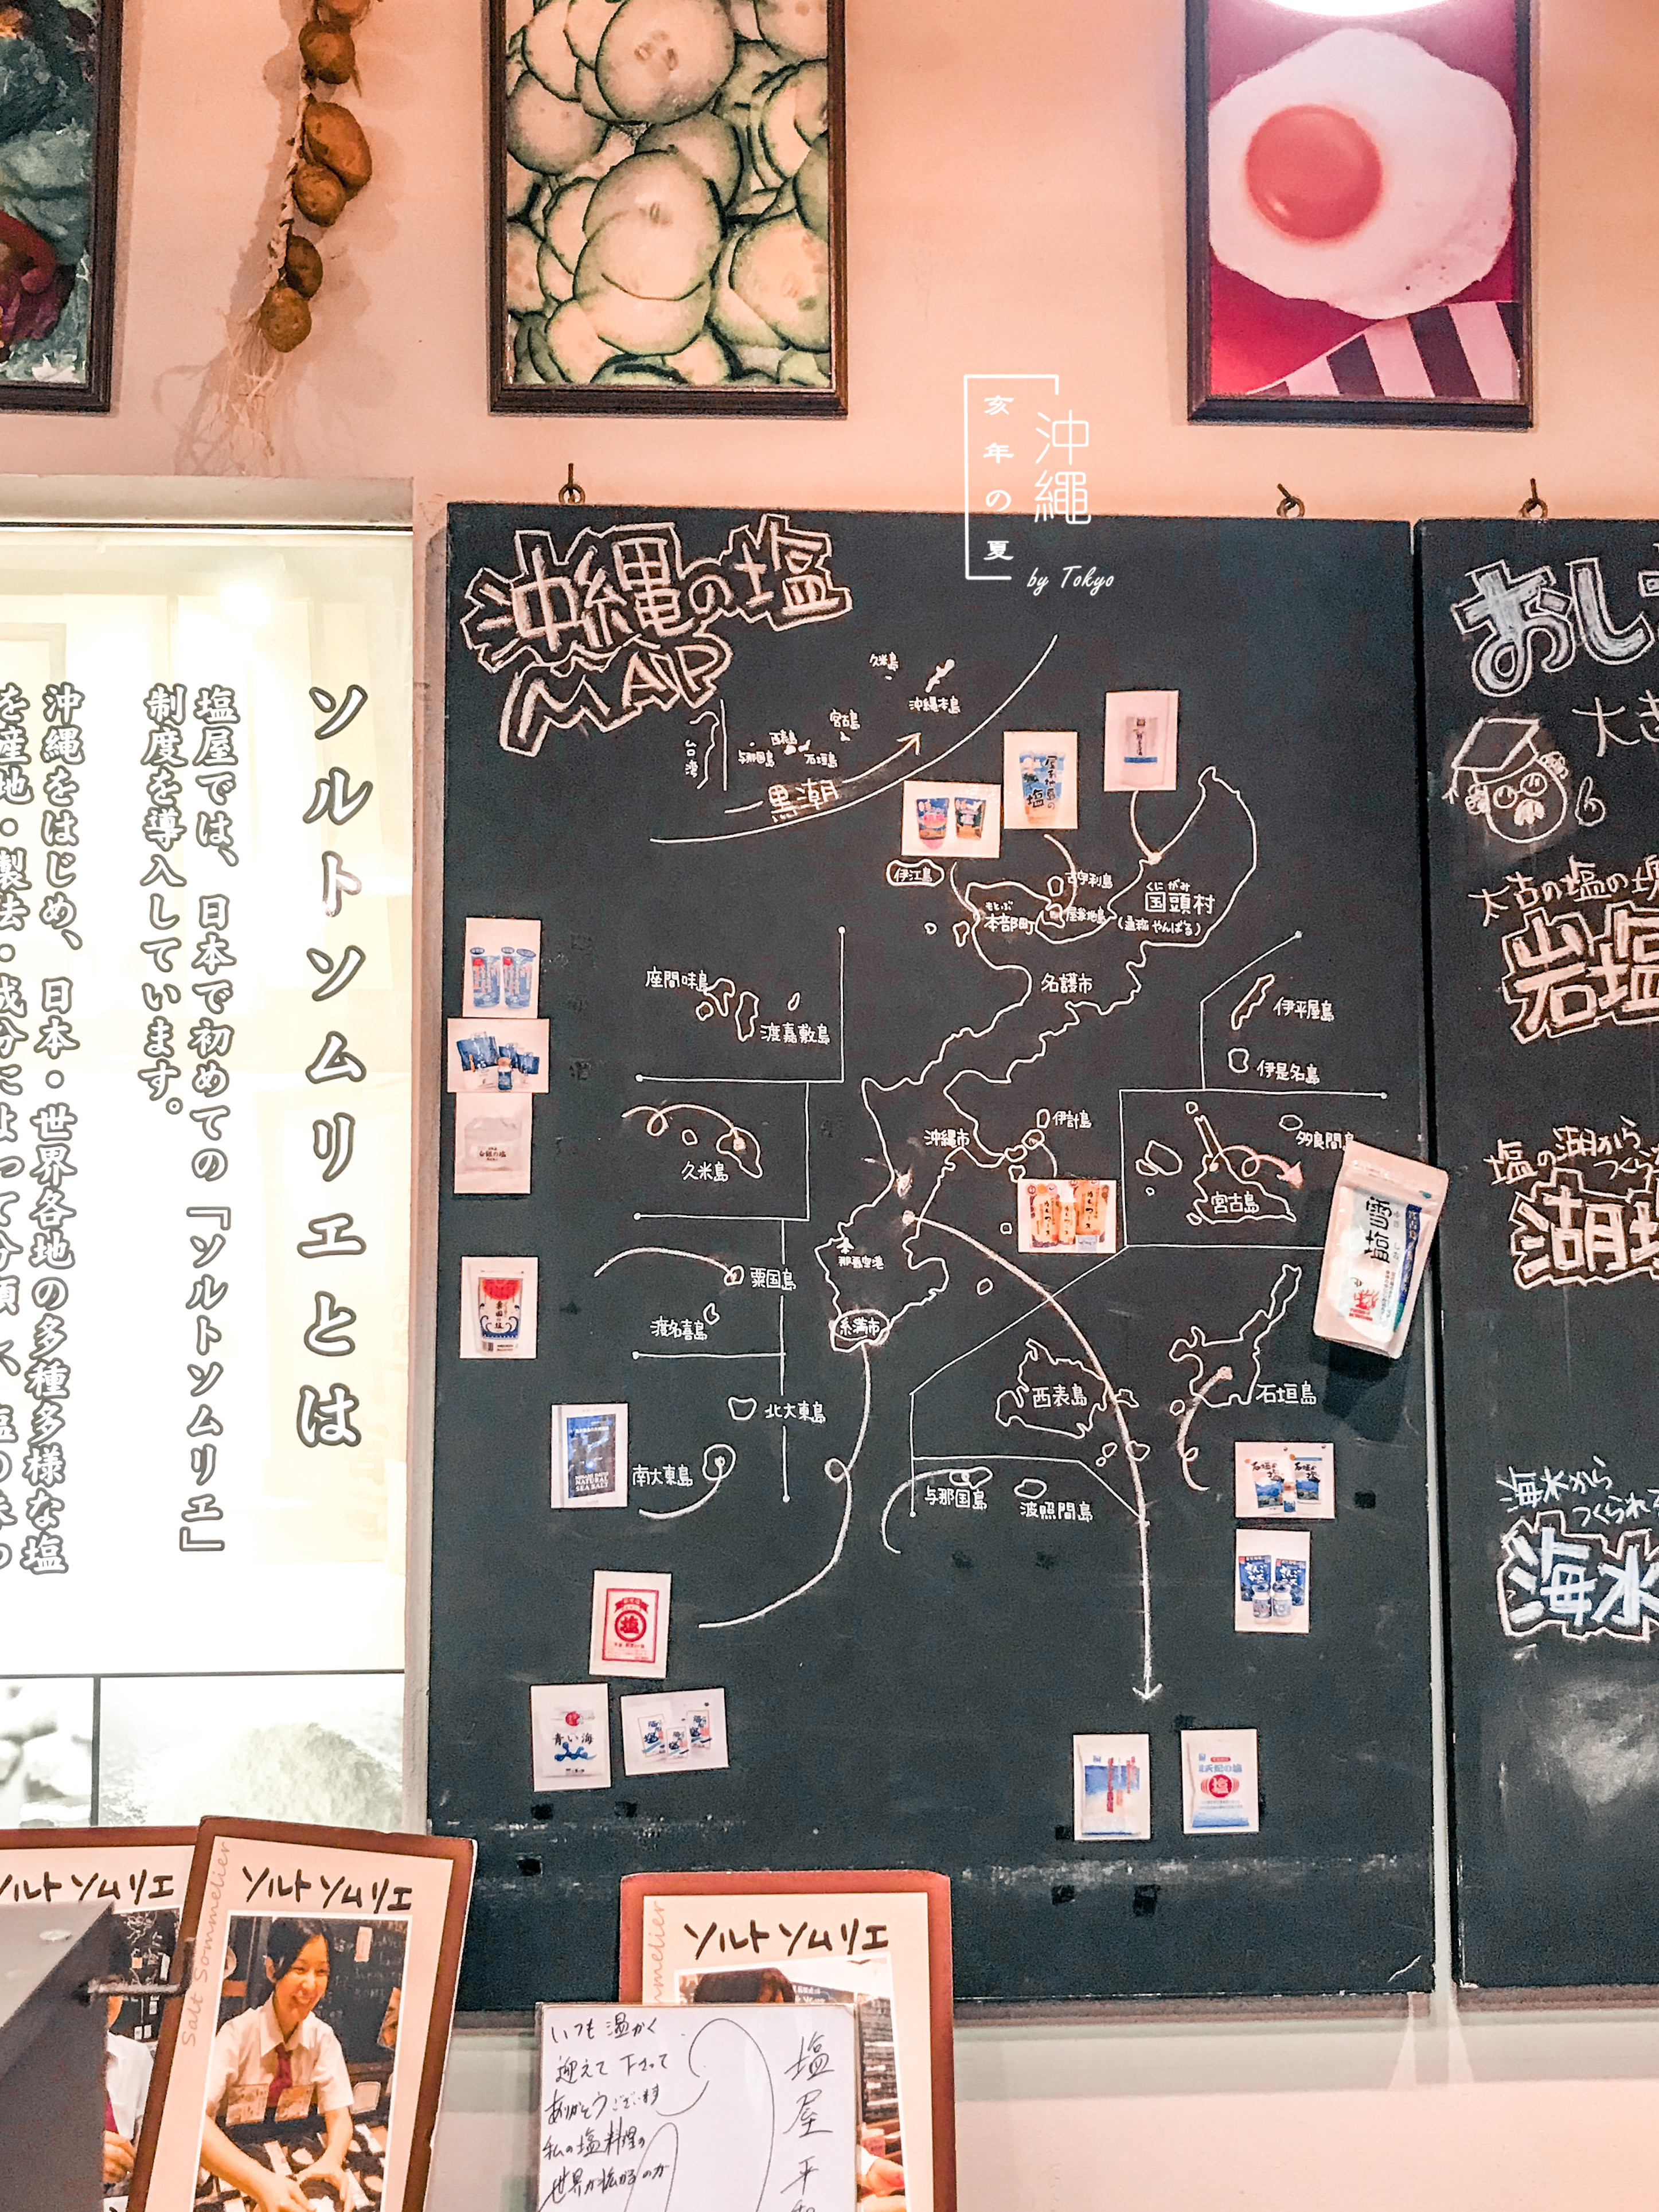 亥年の夏
沖繩
by Tokyo
沖縄の塩
MAP
久米島
沖縄本島
宮古島
西表島
石垣島
与那国島
台湾
黒潮
屋我地島の塩
伊江島
古宇利島
くにがみ
国頭村
(通称 やんばる)
もとぶ
本部町
屋我地島
名護市
座間味島
渡嘉敷島
伊平屋島
伊是名島
久米島
沖縄市
伊計島
多良間島
宮古島
那覇空港
糸満市
粟国島
渡名喜島
北大東島
南大東島
西表島
石垣島
与那国島
波照間島
NATURAL
SEA SALT
塩
青い海
石垣の塩
塩
ソルトソムリエとは
塩屋では、日本で初めての『ソルトソムリエ』
制度を導入しています。
沖縄をはじめ、日本・世界各地の多種多様な塩
おし
大き
太古の塩の塊
岩塩
塩の湖から
つくら
湖塩
海水から
つくられ
海水
ソルトソムリエ
ソルトソムリエ
Salt Sommelier
ソルトソムリエ
mmelier
いつも温かく
迎えて下さって
ありがとうございます
私の塩料理の
塩屋